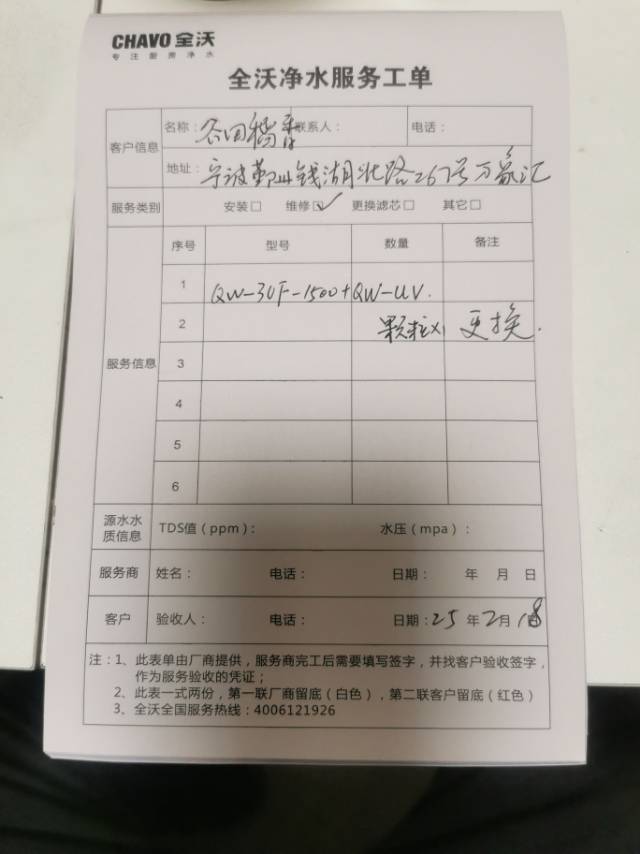 CHAVO 全沃
专注厨房净水
全沃净水服务工单
客户信息
名称：谷田稻香 联系人： 电话：
地址：宁波鄞州钱湖北路267号万象汇
服务类别 安装□ 维修☑ 更换滤芯□ 其它□
服务信息
序号 型号 数量 备注
1 QW-3UF-1500+QW-UV.
2 颗粒x1 更换.
3
4
5
6
源水水质信息 TDS值（ppm）： 水压（mpa）：
服务商 姓名： 电话： 日期： 年 月 日
客户 验收人： 电话： 日期：25年2月18日
注：1、此表单由厂商提供，服务商完工后需要填写签字，并找客户验收签字，
作为服务验收的凭证；
2、此表一式两份，第一联厂商留底（白色），第二联客户留底（红色）
3、全沃全国服务热线：4006121926